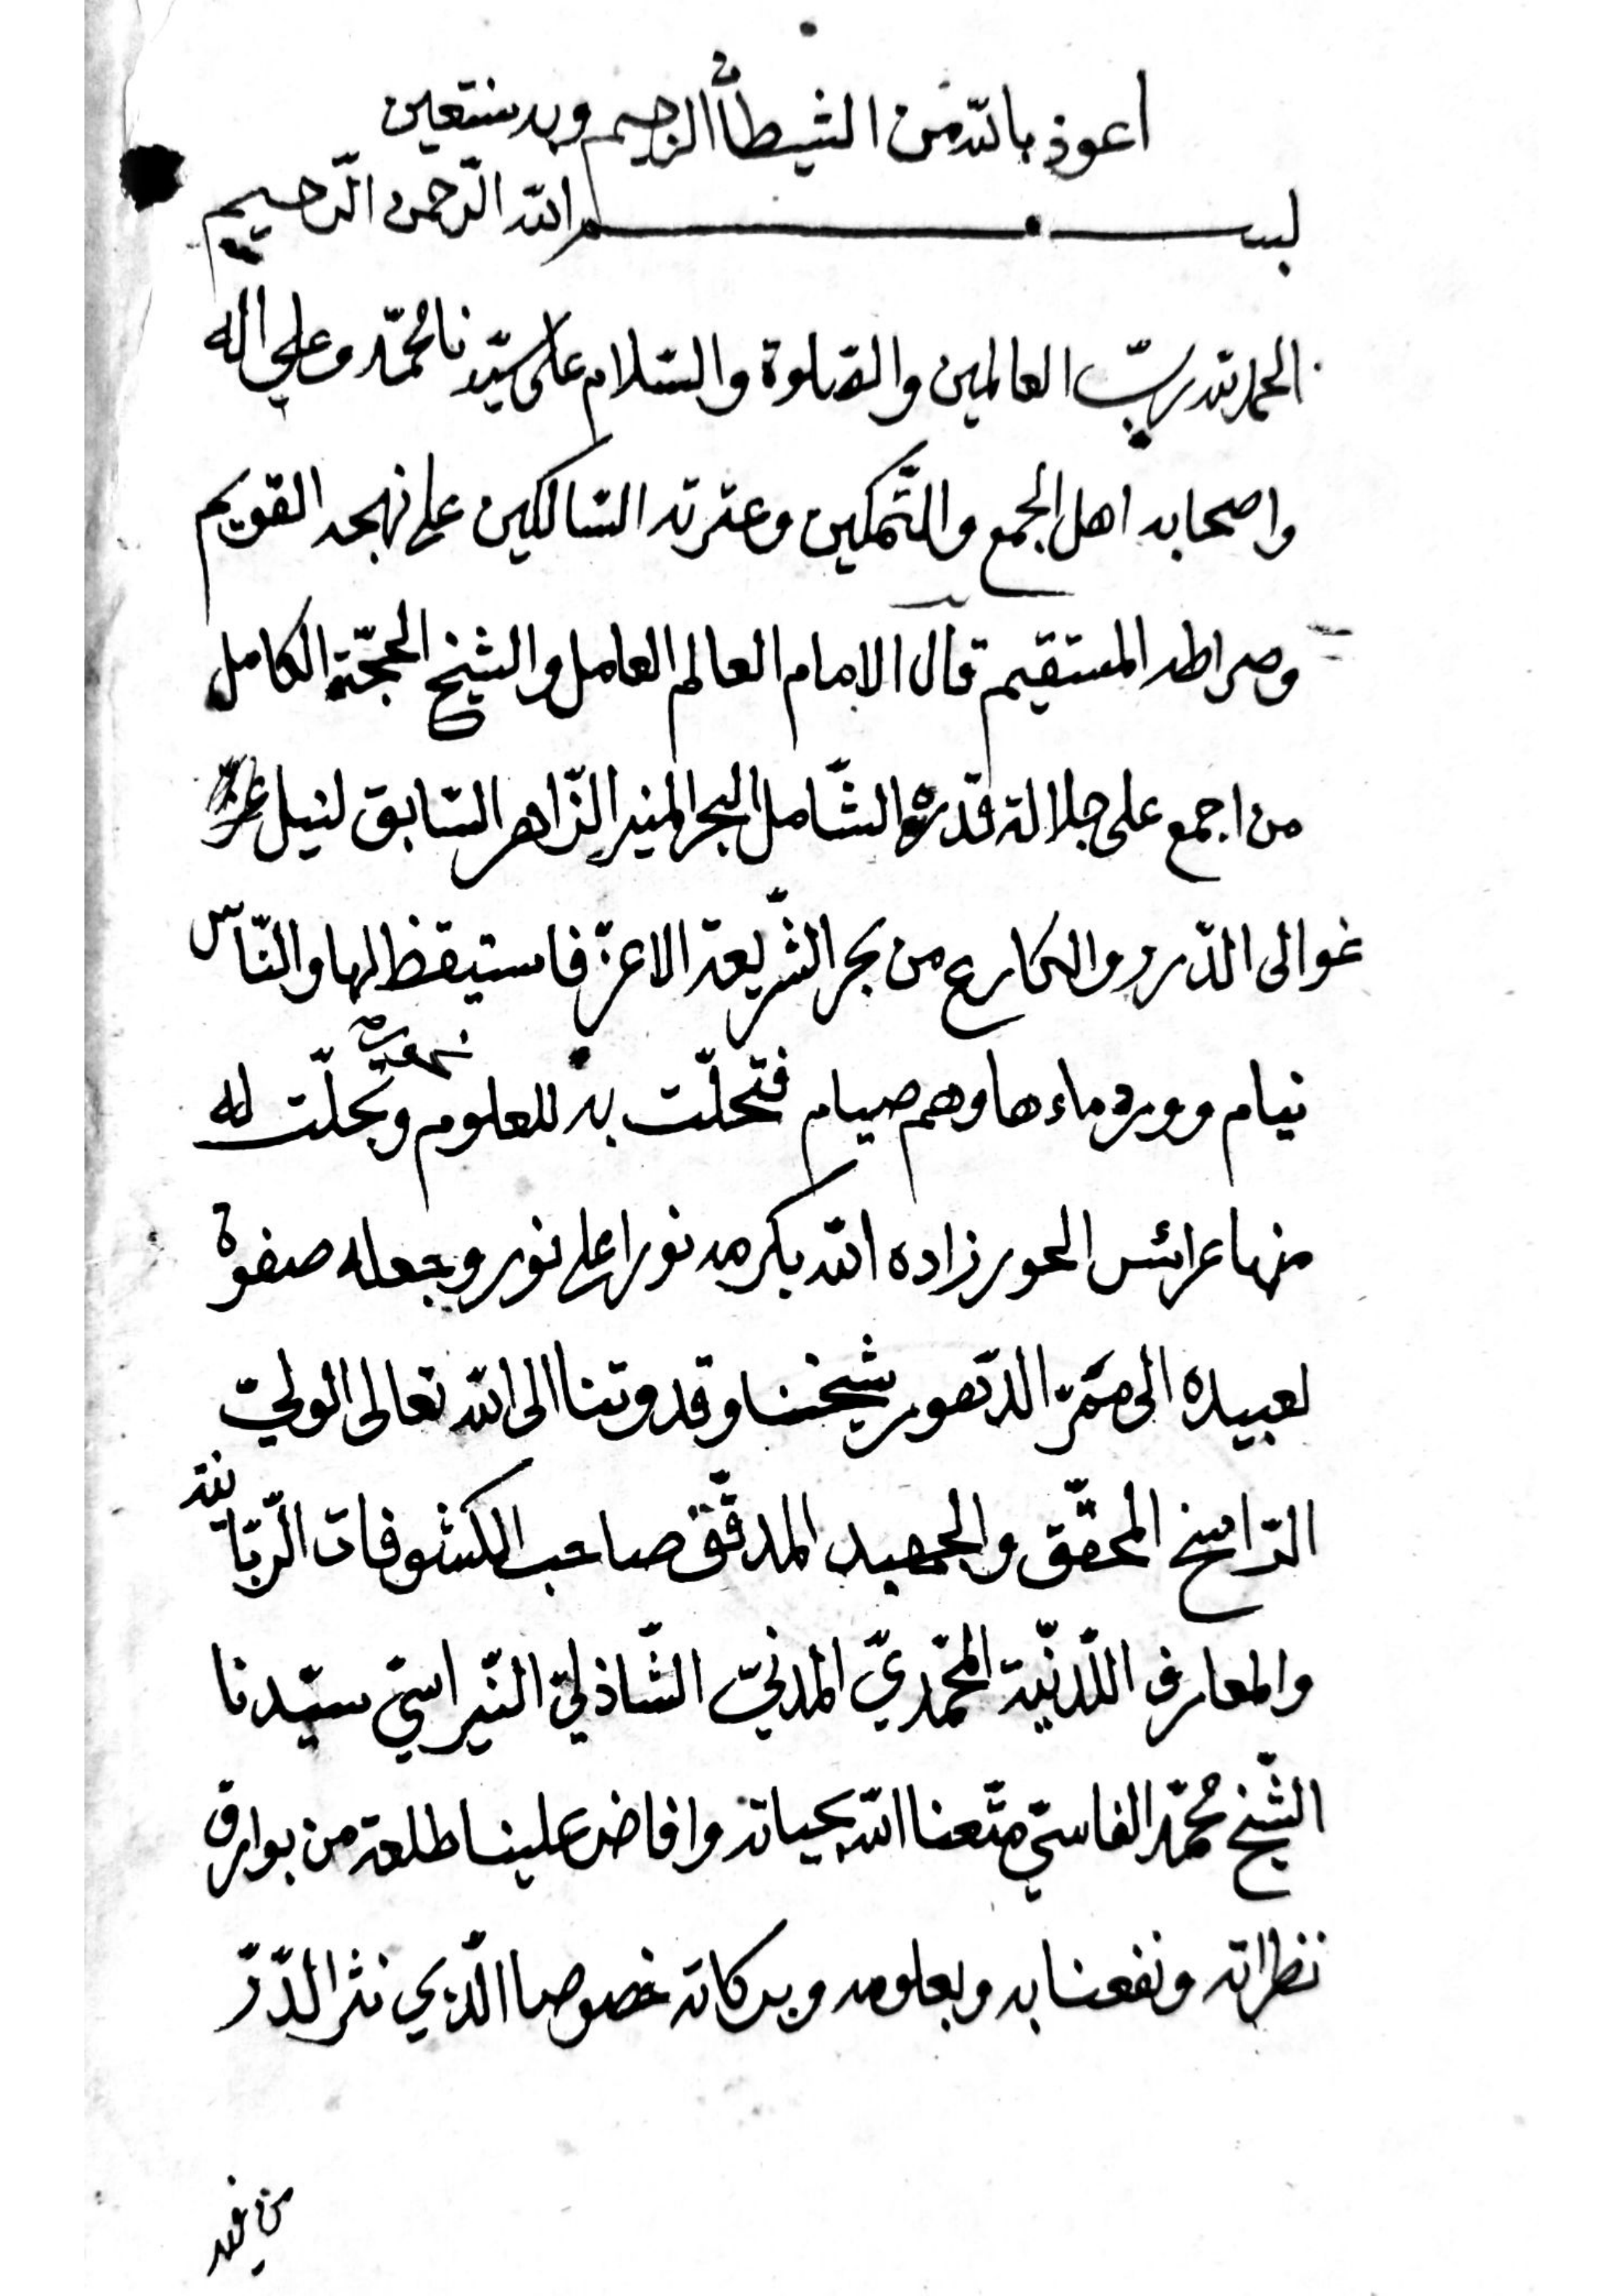 اعوذ بالله من الشيطان الرجيم وبه نستعين
بسم الله الرّحمن الرّحيم
الحمد لله ربّ العالمين والصّلوة والسّلام على سيّدنا محمّد وعلي اله
واصحابه اهل الجمع والتّمكين وعترته السّالكين على نهجه القويم
وصراطه المستقيم قال الامام العالم العامل والشيخ الحجّة الكامل
من اجمع على جلالة قدره الشّامل البحر المنير الزّاهر السّابق لنيل
غوالى الدّرر والكارع من بحر الشّريعة الاعزّ فاستيقظ لها والنّاس
نيام وورد ماءها وهم صيام فتحلّت به للعلوم وتجلّت له
منها عرائس الحور زاده الله بكرمه نورا على نور وجعله صفوة
لعبيده الى ممرّ الدّهور شيخنا وقدوتنا الى الله تعالى الوليّ
الرّاسخ المحقّق والجهبد المدقّق صاحب الكشوفات الرّبّانية
والمعارف اللّدنّيّة المحمّديّ المدنيّ الشّاذليّ النّبراسيّ سيّدنا
الشّيخ محمّد الفاسيّ متّعنا الله بحياته وافاض علينا طلعة من بوارق
نظراته ونفعنا به وبعلومه وبركاته خصوصا الّذي نثر الدّرّ
من فيه